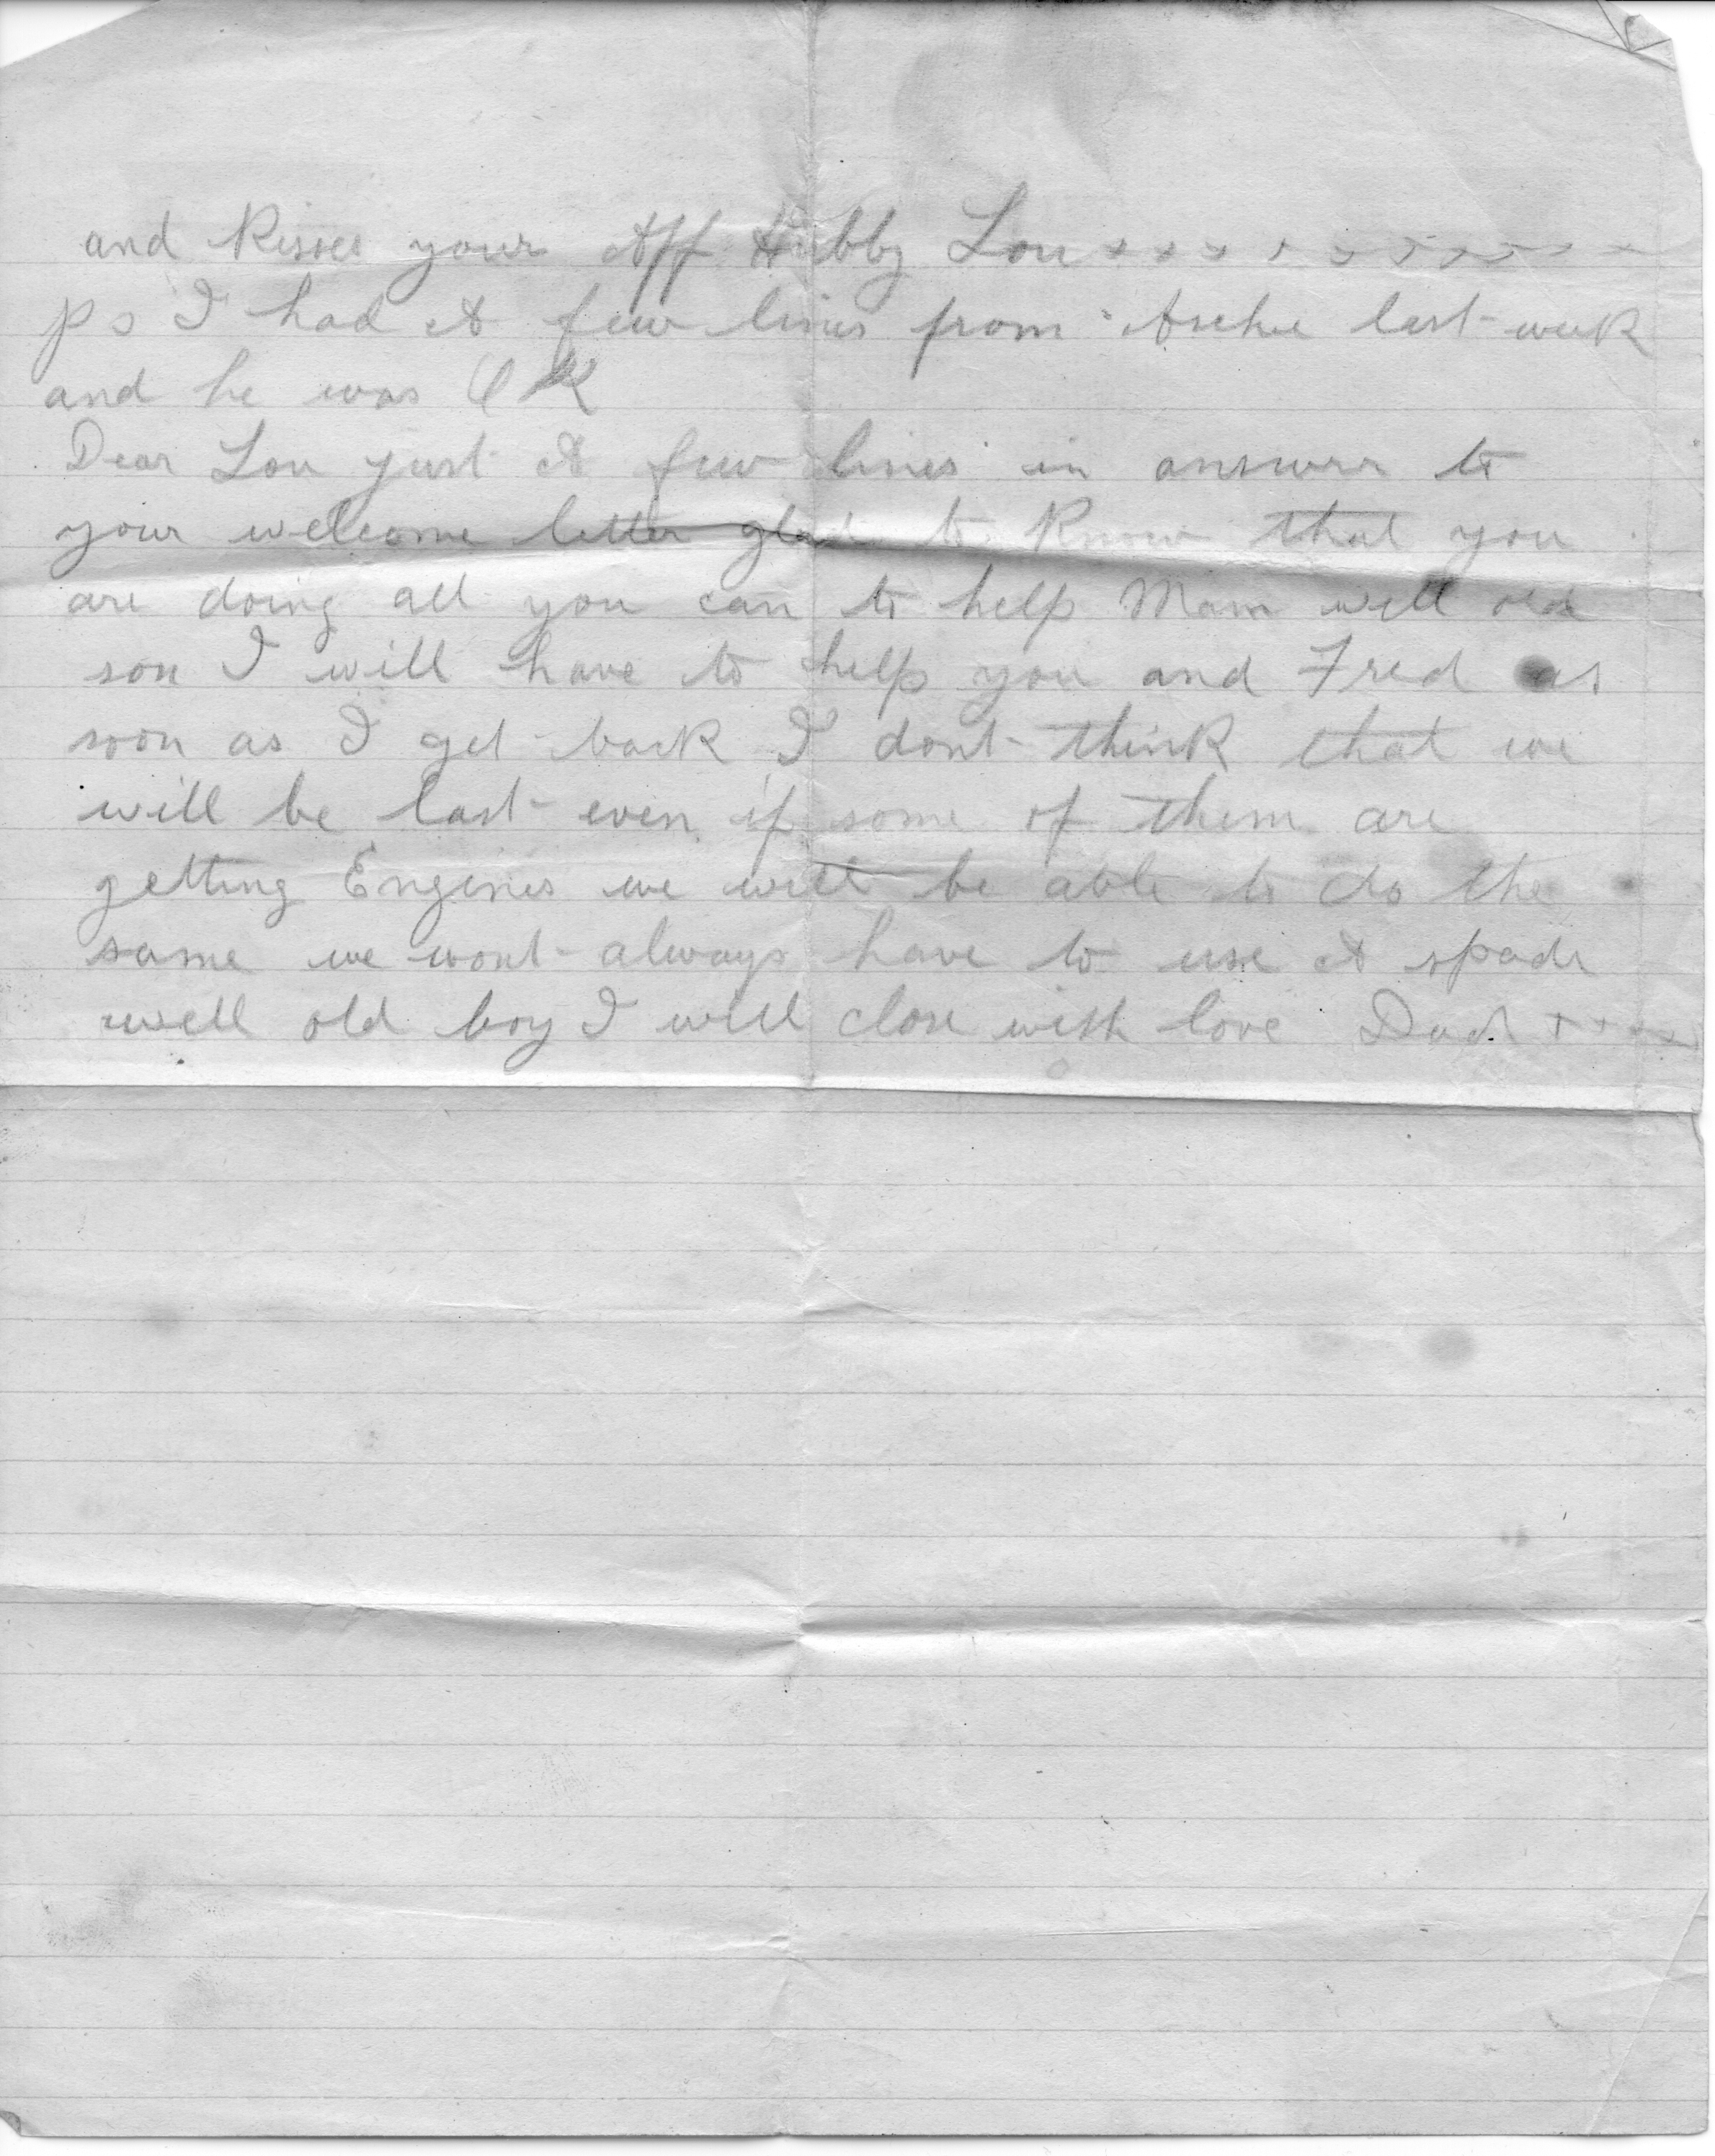 and Kisses your Aff Hubby Lou x x x x x x x x x x x x
ps I had A few lines from Archie last week
and he was OK
Dear Lou just A few lines in answer to
your welcome letter glad to know that you
are doing all you can to help Mam well old
son I will have to help you and Fred as
soon as I get back I dont think that we
will be last even if some of them are
getting Engines we will be able to do the
same we wont always have to use A spade
well old boy I will close with love Dad x x x x